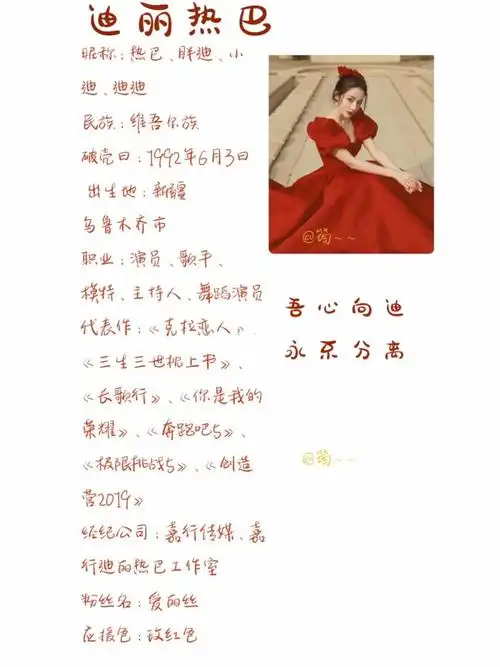 迪丽热巴
昵称:热巴、胖迪、小
迪、迪迪
民族:维吾尔族
破壳日:1992年6月3日
出生地:新疆
乌鲁木齐市
职业:演员、歌手、
模特、主持人、舞蹈演员
代表作:《克拉恋人》、
《三生三世枕上书》、
《长歌行》、《你是我的
荣耀》、《奔跑吧5》、
《极限挑战5》、《创造
营2019》
经纪公司:嘉行传媒、嘉
行迪丽热巴工作室
粉丝名:爱丽丝
应援色:玫红色
@筠~~
吾心向迪
永不分离
@筠~~